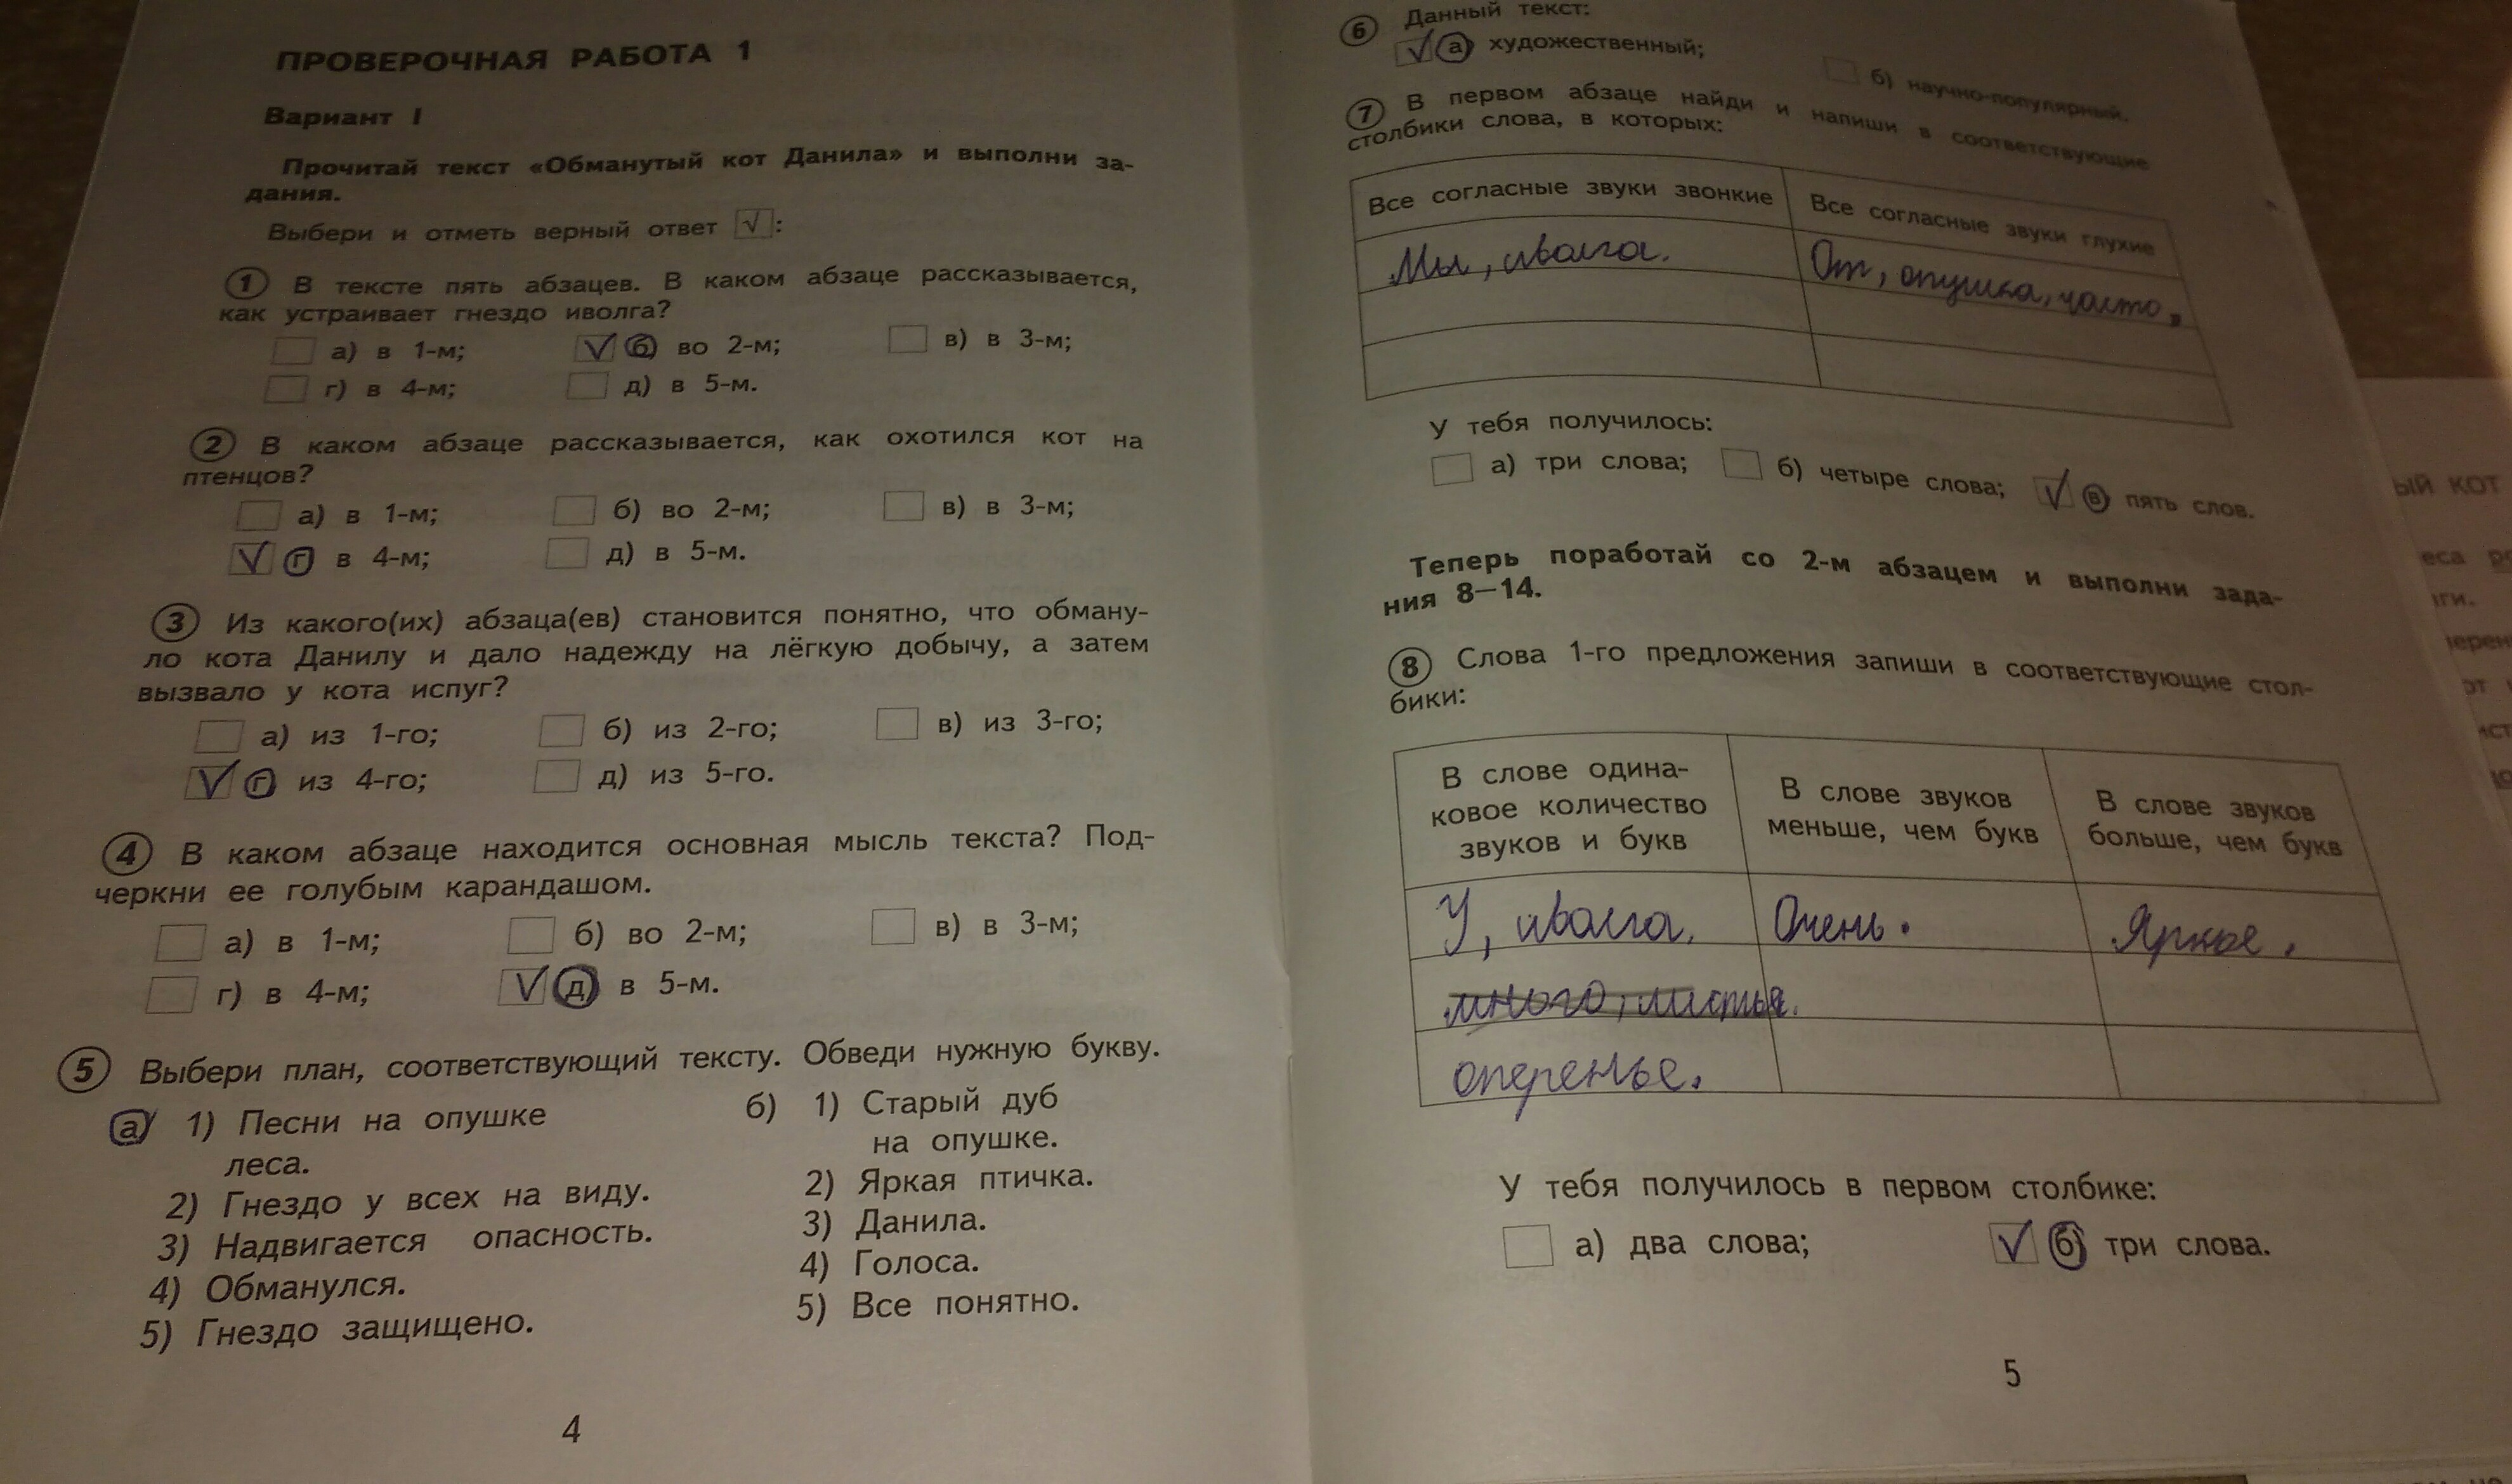 ПРОВЕРОЧНАЯ РАБОТА 1
Вариант I
Прочитай текст «Обманутый кот Данила» и выполни за-
дания.
Выбери и отметь верный ответ √:
1 В тексте пять абзацев. В каком абзаце рассказывается,
как устраивает гнездо иволга?
а) в 1-м; √ б) во 2-м; в) в 3-м;
г) в 4-м; д) в 5-м.
2 В каком абзаце рассказывается, как охотился кот на
птенцов?
а) в 1-м; б) во 2-м; в) в 3-м;
√ г) в 4-м; д) в 5-м.
3 Из какого(их) абзаца(ев) становится понятно, что обману-
ло кота Данилу и дало надежду на лёгкую добычу, а затем
вызвало у кота испуг?
а) из 1-го; б) из 2-го; в) из 3-го;
√ г) из 4-го; д) из 5-го.
4 В каком абзаце находится основная мысль текста? Под-
черкни ее голубым карандашом.
а) в 1-м; б) во 2-м; в) в 3-м;
г) в 4-м; √ д) в 5-м.
5 Выбери план, соответствующий тексту. Обведи нужную букву.
а) 1) Песни на опушке
леса.
2) Гнездо у всех на виду.
3) Надвигается опасность.
4) Обманулся.
5) Гнездо защищено.
б) 1) Старый дуб
на опушке.
2) Яркая птичка.
3) Данила.
4) Голоса.
5) Все понятно.
4
6 Данный текст:
√ а) художественный; б) научно-популярный.
7 В первом абзаце найди и напиши в соответствующие
столбики слова, в которых:
Все согласные звуки звонкие Все согласные звуки глухие
Мы, иволга. От, опушка, часто,
У тебя получилось:
а) три слова; б) четыре слова; √ в) пять слов.
Теперь поработай со 2-м абзацем и выполни зада-
ния 8—14.
8 Слова 1-го предложения запиши в соответствующие стол-
бики:
В слове одина-
ковое количество
звуков и букв
В слове звуков
меньше, чем букв
В слове звуков
больше, чем букв
У, иволга. Очень. Яркое.
много, листья.
оперенье.
У тебя получилось в первом столбике:
а) два слова; √ б) три слова.
5
ый кот